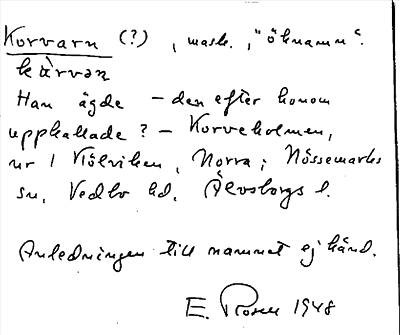 Korvarn (?), mask., "öknamn".
kårvan
Han ägde – den efter honom
uppkallade? – Korveholmen,
nr 1 Kölviken, Norra; Nössemarks
sn, Vedbo hd, Älvsborgs l.
Anledningen till namnet ej känd.
E. Rosen 1948